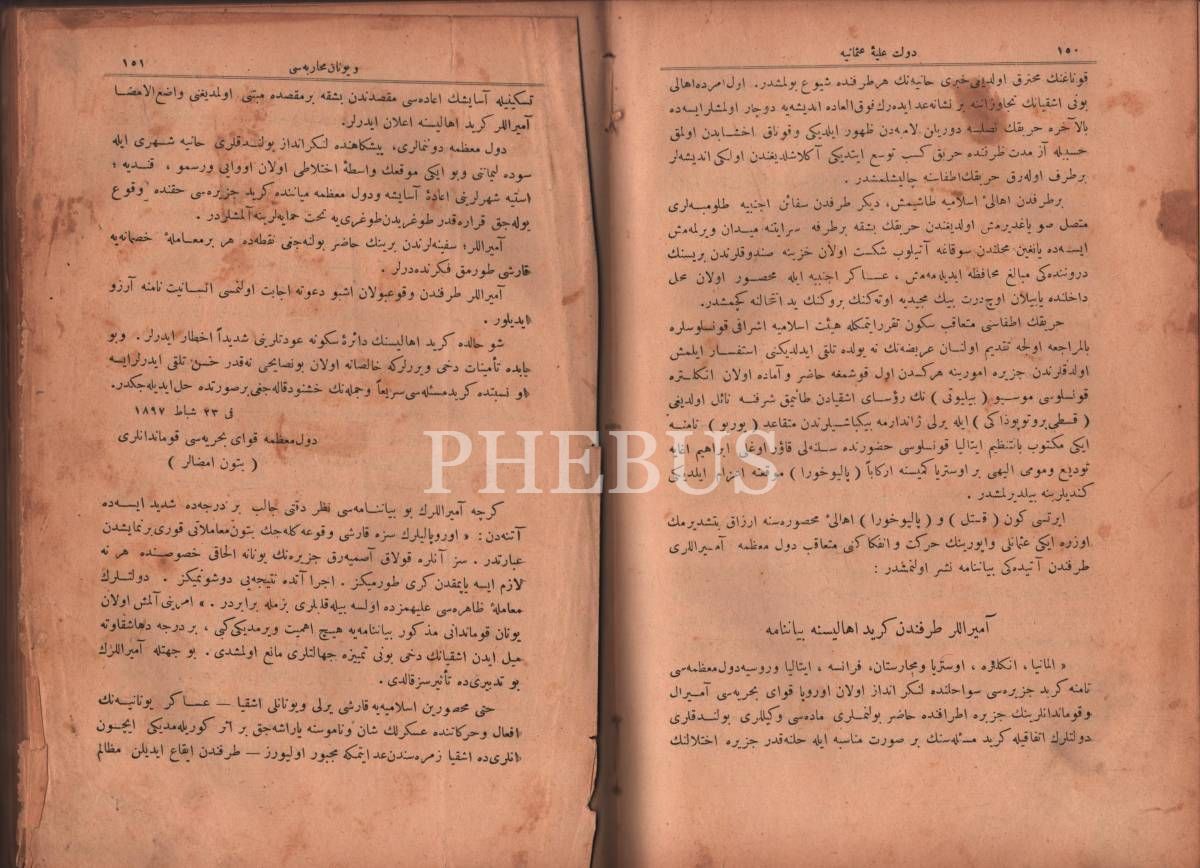 ١٥٠
دولت علیهٔ عثمانیه
قوناغنك محترق اولدیغی خبری حانیه‌نك هر طرفنده شیوع بولمشدر. اول امرده اهالی
بونی اشقیانك تجاوزاتنه بر نشانه عد ایده‌رك فوق‌العاده اندیشه‌یه دوچار اولمشلر ایسه‌ده
بالآخره حریقك دوریان لامه‌دن ظهور ایلدیکی وقوناق اخشابدن اولمق
حسبیله آز مدت ظرفنده حریق کسب توسع ایتدیکی آکلاشلدیغندن اولکی اندیشه‌لر
برطرف اوله‌رق حریقك اطفاسنه چالیشلمشدر .
برطرفدن اهالیٔ اسلامیه طاشیمش، دیکر طرفدن سفائن اجنبیه طلومبه‌لری
متصل صو یاغدیرمش اولدیغندن حریقك بشقه بر طرفه سرایتنه میدان ویرلمه‌مش
ایسه‌ده یانغین محلندن سوقاغه آتیلوب شکست اولان خزینه صندوقلرندن بریسنك
دروننده‌کی مبالغ محافظه ایدیله‌مه‌مش ، عساکر اجنبیه ایله محصور اولان محل
داخلنده یاپیلان اوچ درت بیك مجیدیه اوته‌کنك بروکنك ید انتحالنه کچمشدر.
حریقك اطفاسنی متعاقب سکون تقرر ایتمکله هیئت اسلامیه اشرافی قونسلوسلره
بالمراجعه اولجه تقدیم اولنان عریضه‌نك نه یولده تلقی ایدلدیکنی استفسار ایلمش
اولدقلرندن جزیره امورینه هرکسدن اول قوشمغه حاضر و آماده اولان انکلتره
قونسلوسی موسیو ( بیلیوتی ) نك رؤسای اشقیادن طانیمق شرفنه نائل اولدیغی
( قسطی پروتوپوذاکی ) ایله یرلی ژاندارمه بیکباشیلرندن متقاعد ( یوریو ) نامنه
ایکی مکتوب بالتنظیم ایتالیا قونسلوسی حضورنده سلنه‌لی قاؤر اوغلی ابراهیم اغایه
تودیع ومومی الیهی بر اوستریا کمیسنه ارکاباً ( پالیوخورا ) موقعنه اعزام ایلدیکی
کندیلرینه بیلدیرلمشدر .
ایرتسی کون ( قستل ) و ( پالیوخورا ) اهالیٔ محصوره‌سنه ارزاق یتشدیرمك
اوزره ایکی عثمانلی واپورینك حرکت و انفکاکنی متعاقب دول معظمه آمیراللری
طرفندن آتیده‌کی بیاننامه نشر اولنمشدر :
آمیراللر طرفندن کرید اهالیسنه بیاننامه
« المانیا ، انکلتره ، اوستریا ومجارستان، فرانسه ، ایتالیا وروسیه دول معظمه‌سی
نامنه کرید جزیره‌سی سواحلنده لنکر انداز اولان اوروپا قوای بحریه‌سی آمیرال
وقوماندانلرینك جزیره اطرافنده حاضر بولنملری ماده‌سی وکیللری بولندقلری
دولتلرك اتفاقیله کرید مسئله‌سنك بر صورت مناسبه ایله حلنه‌قدر جزیره اختلالنك
ویونان محاربه‌سی
١٥١
تسکینیله آسایشك اعاده‌سی مقصدندن بشقه بر مقصده مبتنی اولمدیغنی واضع‌الامضا
آمیراللر کرید اهالیسنه اعلان ایدرلر.
دول معظمه دونمالری، پیشکاهنده لنکرانداز بولندقلری حانیه شهری ایله
سوده لیماننی وبو ایکی موقعك واسطهٔ اختلاطی اولان اووایی ورسمو ، قندیه ؛
استیه شهرلرینی اعادهٔ آسایشه ودول معظمه میاننده کرید جزیره‌سی حقنده وقوع
بوله‌جق قراره‌قدر طوغریدن طوغری‌یه تحت حمایه‌لرینه آلمشلردر .
آمیراللر؛ سفینه‌لرندن برینك حاضر بولنه‌جغی نقطه‌ده هر بر معاملهٔ خصمانه‌یه
قارشی طورمق فکرنده‌درلر .
آمیراللر طرفندن وقوعبولان اشبو دعوته اجابت اولنمسی انسانیت نامنه آرزو
ایدیلور .
شو حالده کرید اهالیسنك دائرهٔ سکونه عودتلرینی شدیداً اخطار ایدرلر . وبو
بابده تأمینات دخی ویررلرکه خالصانه اولان بونصایحی نه‌قدر حسن تلقی ایدرلر ایسه
او نسبتده کرید مسئله‌سی سریعاً وجمله‌نك خشنود قاله‌جغی بر صورتده حل ایدیله‌جکدر.
فی ٢٣ شباط ١٨٩٧
دول معظمه قوای بحریه‌سی قوماندانلری
( بتون امضالر )
کرچه آمیراللرك بو بیاننامه‌سی نظر دقتی جالب بر درجه‌ده شدید ایسه‌ده
آتنه‌دن : « اوروپالیلرك سزه قارشی وقوعه کله‌جك بتون معاملاتی قوری بر نمایشدن
عبارتدر . سز آنلره قولاق آصمیه‌رق جزیره‌نك یونانه الحاقی خصوصنده هر نه
لازم ایسه یاپمقدن کری طورمیکز . اجرا آتده نتیجه‌یی دوشونمیکز . دولتلرك
معاملهٔ ظاهره‌سی علیهمزده اولسه بیله قلبلری بزمله برابردر . » امرینی آلمش اولان
یونان قوماندانی مذکور بیاننامه‌یه هیچ اهمیت ویرمدیکی کبی ، بر درجه دها شقاوته
میل ایدن اشقیانك دخی بونی تمییزه جهالتلری مانع اولمشدی . بو جهتله آمیراللرك
بو تدبیری‌ده تأثیرسز قالدی .
حتی محصورین اسلامیه‌یه قارشی یرلی ویونانلی اشقیا — عساکر یونانیه‌نك
افعال وحرکاتنده عسکرلك شان وناموسنه یاراشه‌جق بر اثر کوریله‌مدیکی ایچون
انلری‌ده اشقیا زمره‌سندن عد ایتمکه مجبور اولیورز — طرفندن ایقاع ایدیلن مظالم
PHEBUS